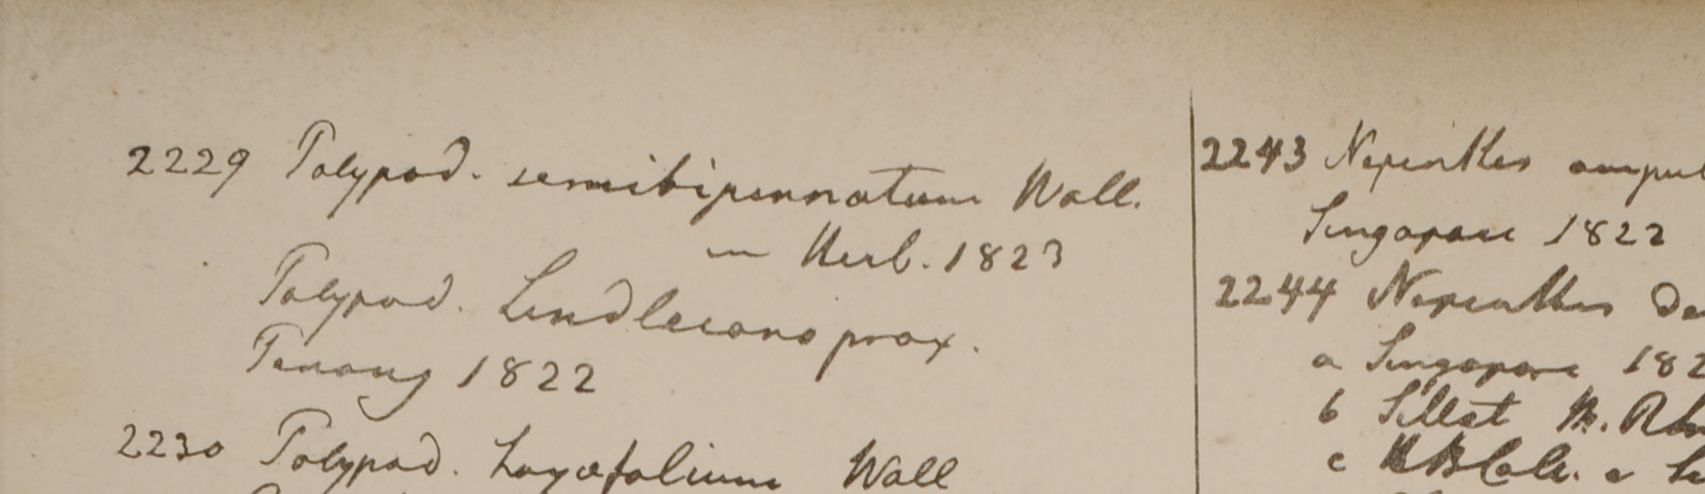 2229 Polypod. semibipennatum Wall.
in Herb. 1823
Polypod. Lindleiano prox.
Penang 1822
2230 Polypod. Wall
2243 Nepenthes ampul
Singapore 1822
2244 Nepenthes
a Singapore 182
b Sillet
c